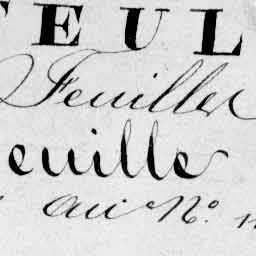 TEUL
Feuillet
euille
au N°.